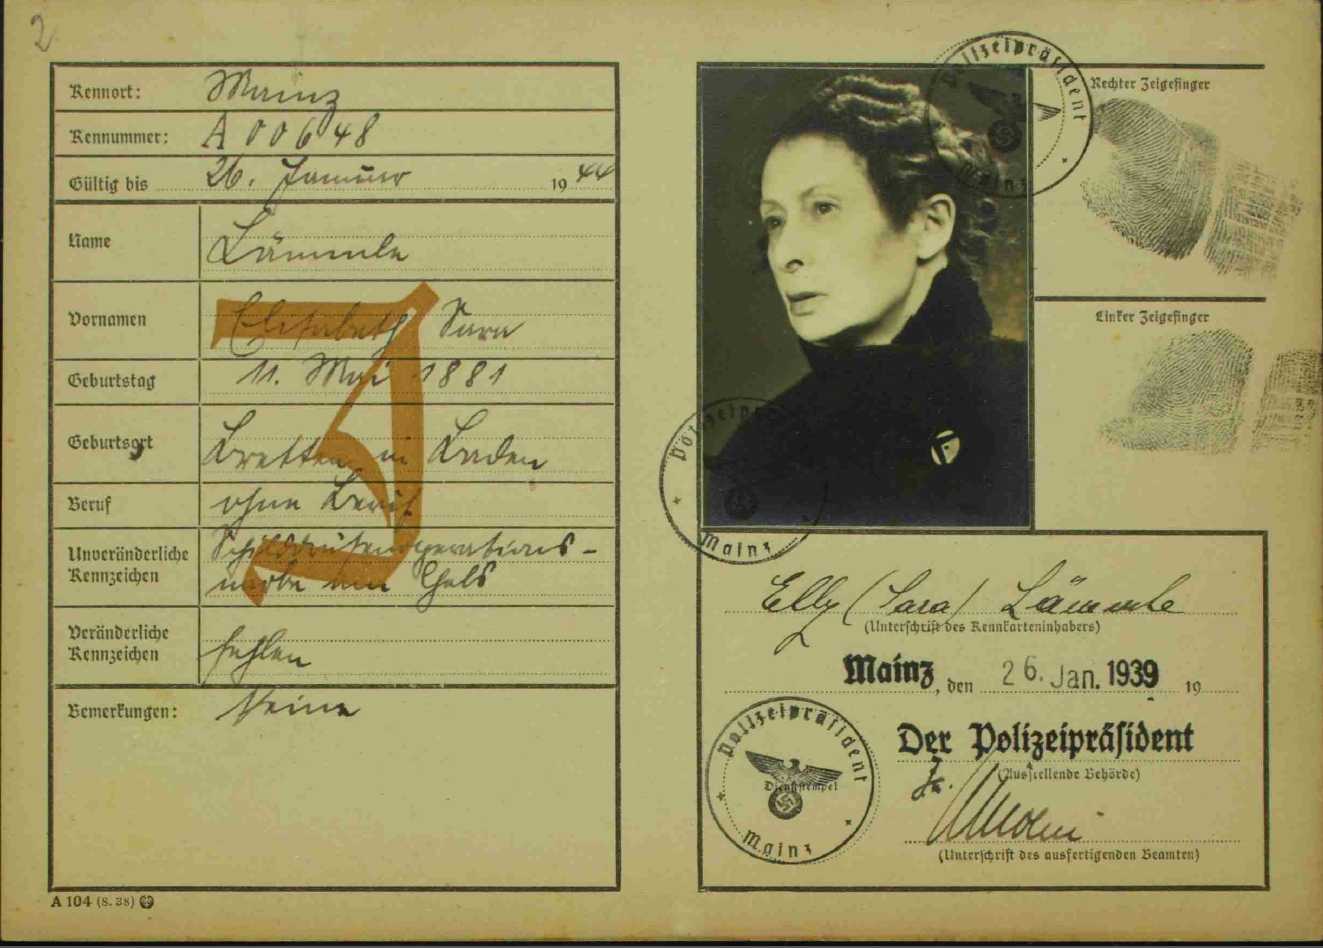 2
Kennort: Mainz
Kennummer: A 00648
Gültig bis 26. Januar 1944
Name Lämmle
Vornamen Elisabeth Sara
Geburtstag 11. Mai 1881
Geburtsort Bretten in Baden
Beruf ohne Beruf
Unveränderliche Kennzeichen Schilddrüsenoperations-
narbe am Hals
Veränderliche Kennzeichen fehlen
Bemerkungen: Keine
J
A 104 (8. 38)
Polizeipräsident
Mainz
Rechter Zeigefinger
Linker Zeigefinger
Polizeipräsident
Mainz
Elly (Sara) Lämmle
(Unterschrift des Kennkarteninhabers)
Mainz, den 26. Jan. 1939 19
Der Polizeipräsident
(Ausstellende Behörde)
Polizeipräsident
Dienststempel
Mainz
(Unterschrift des ausfertigenden Beamten)